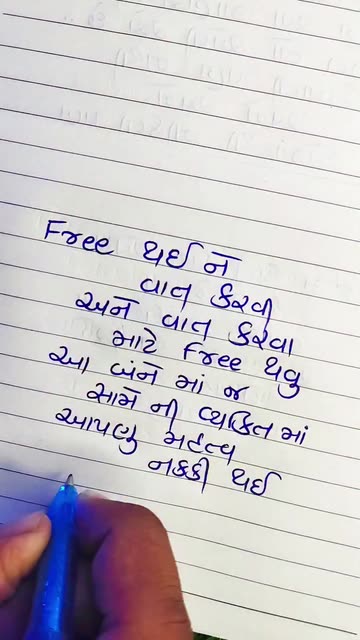 Free થઈ ને
વાત કરવી
અને વાત કરવા
માટે Free થવુ
આ બંને માં જ
સામે ની વ્યકિત માં
આપણુ મહત્વ
નકકી થઈ